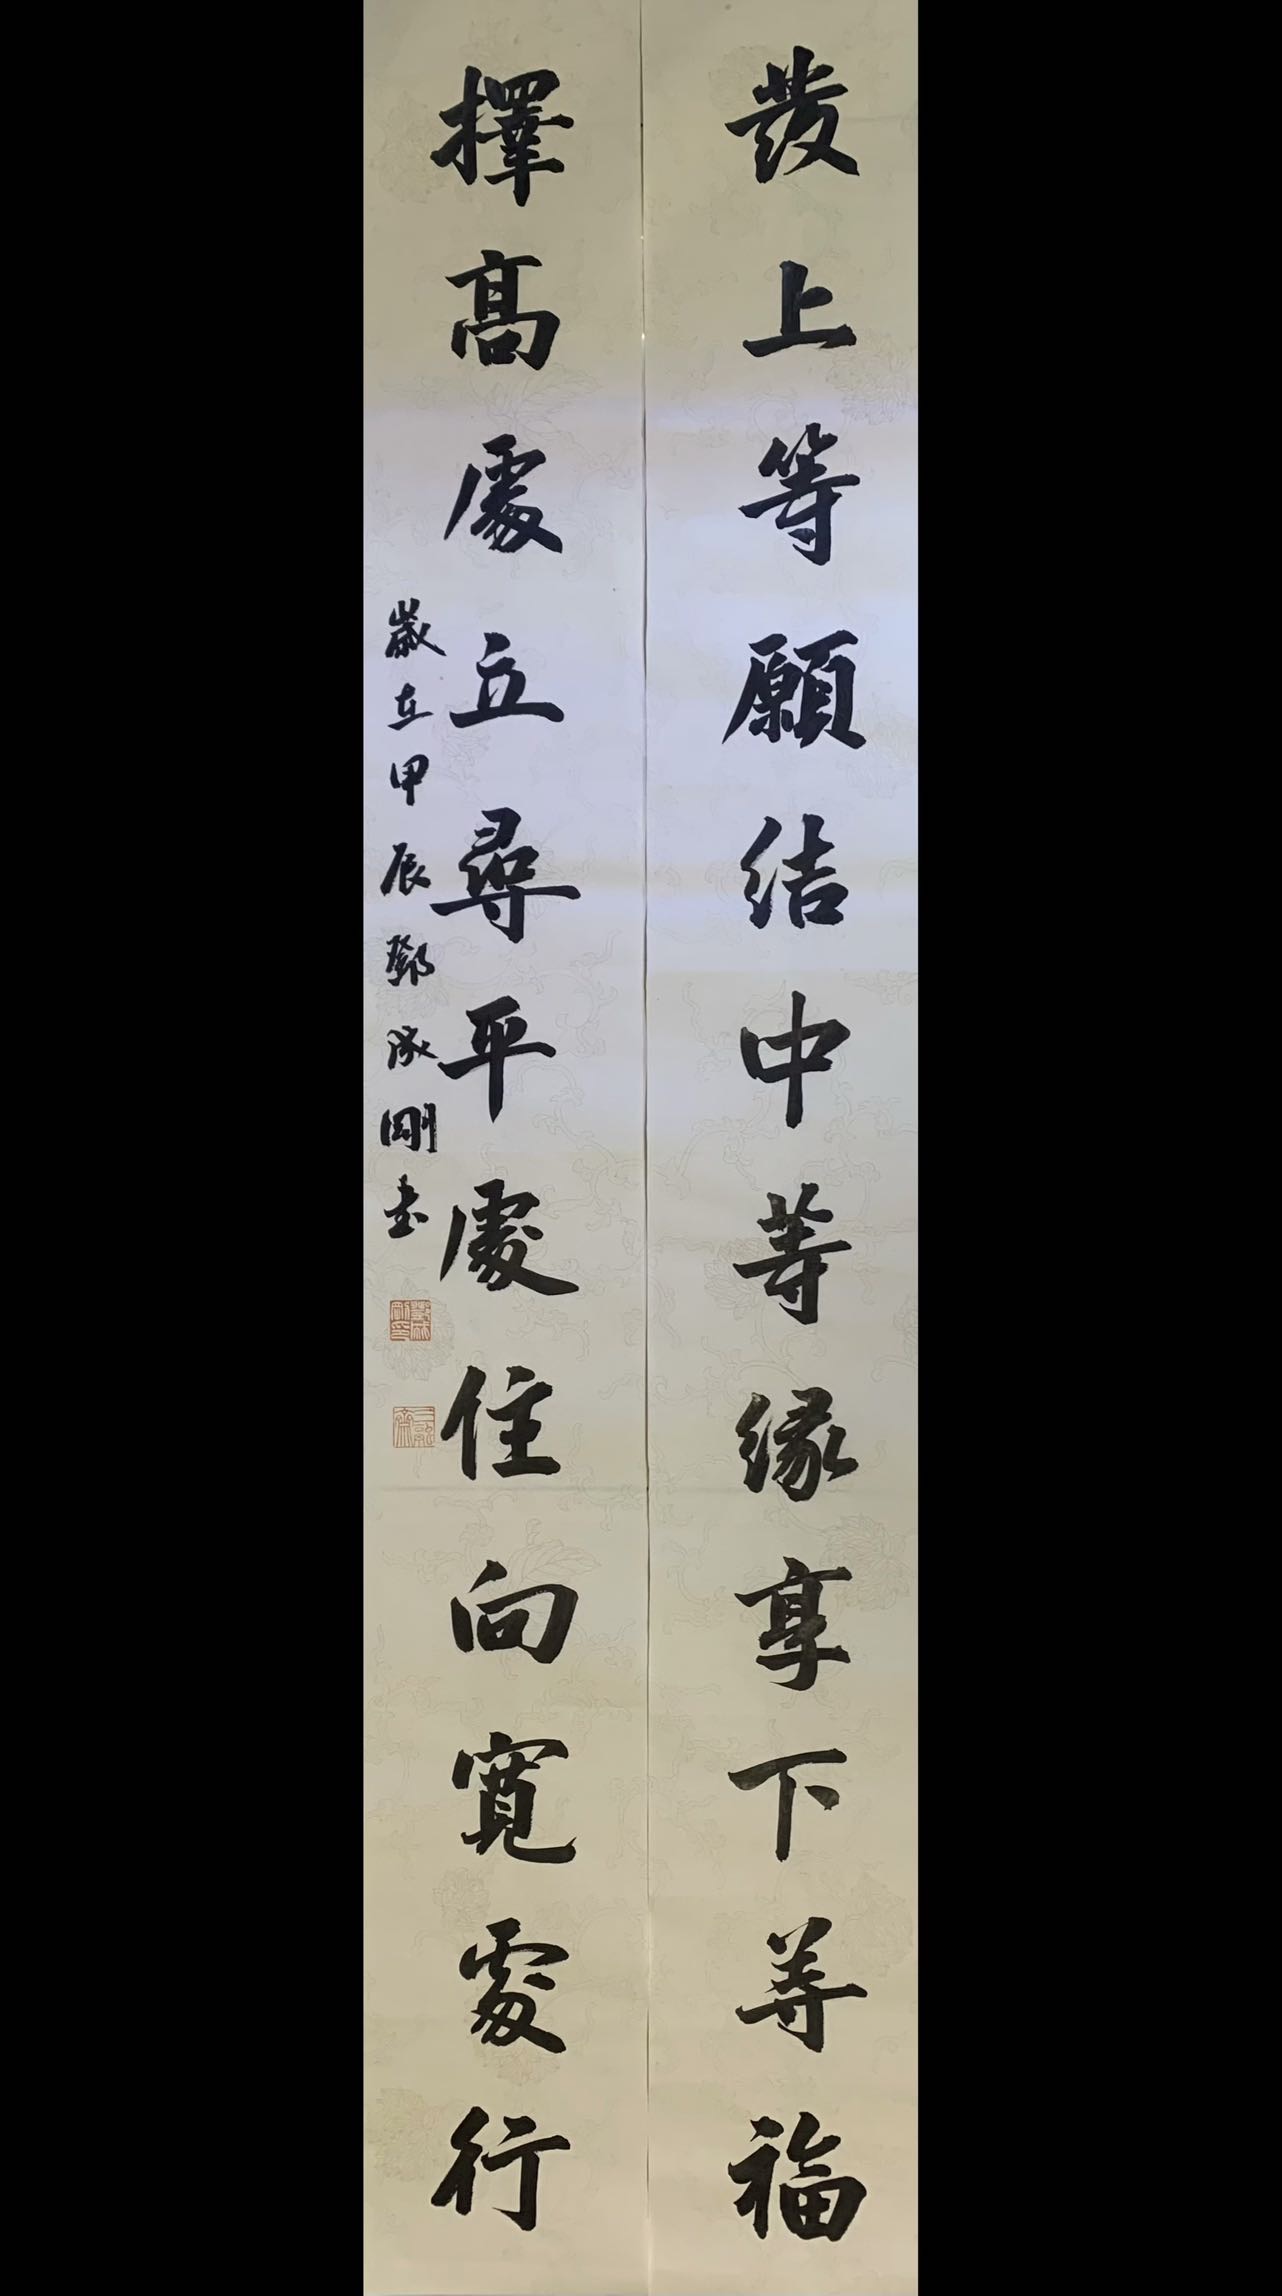 發上等願結中等緣享下等福
擇高處立尋平處住向寬處行
歲在甲辰鄧成剛書
鄧成剛印